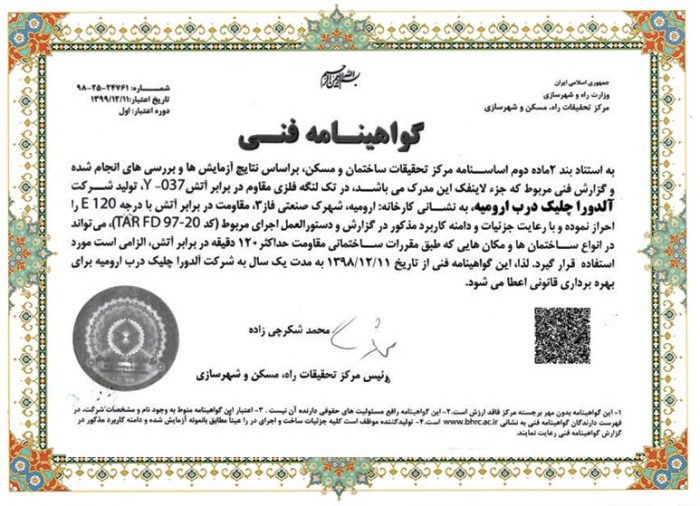 بسم الله الرحمن الرحیم
جمهوری اسلامی ایران
وزارت راه و شهرسازی
مرکز تحقیقات راه، مسکن و شهرسازی
شماره: ۲۴۷۶۱-۲۵-۹۸
تاریخ اعتبار: ۱۳۹۹/۱۲/۱۱
دوره اعتبار: اول
گواهینامه فنی
به استناد بند ۲ماده دوم اساسنامه مرکز تحقیقات ساختمان و مسکن، براساس نتایج آزمایش ها و بررسی های انجام شده
و گزارش فنی مربوط که جزء لاینفک این مدرک می باشد، در تک لنگه فلزی مقاوم در برابر آتش Y-037، تولید شرکت
آلدورا چلیک درب ارومیه، به نشانی کارخانه: ارومیه، شهرک صنعتی فاز۳، مقاومت در برابر آتش با درجه E 120 را
احراز نموده و با رعایت جزئیات و دامنه کاربرد مذکور در گزارش و دستورالعمل اجرای مربوط (کد TAR FD 97-20)، می‌تواند
در انواع ساختمان ها و مکان هایی که طبق مقررات ساختمانی مقاومت حداکثر ۱۲۰ دقیقه در برابر آتش، الزامی است مورد
استفاده قرار گیرد. لذا، این گواهینامه فنی از تاریخ ۱۳۹۸/۱۲/۱۱ به مدت یک سال به شرکت آلدورا چلیک درب ارومیه برای
بهره برداری قانونی اعطا می شود.
محمد شکرچی زاده
رئیس مرکز تحقیقات راه، مسکن و شهرسازی
۱- این گواهینامه بدون مهر برجسته مرکز فاقد ارزش است.۲- این گواهینامه رافع مسئولیت های حقوقی دارنده آن نیست. ۳- اعتبار این گواهینامه منوط به وجود نام و مشخصات شرکت، در
فهرست دارندگان گواهینامه فنی به نشانی www.bhrc.ac.ir است.۴- تولیدکننده موظف است کلیه جزئیات ساخت و اجرای در را عیناً مطابق بانمونه آزمایش شده و دامنه کاربرد مذکور در
گزارش گواهینامه فنی رعایت نمایند.